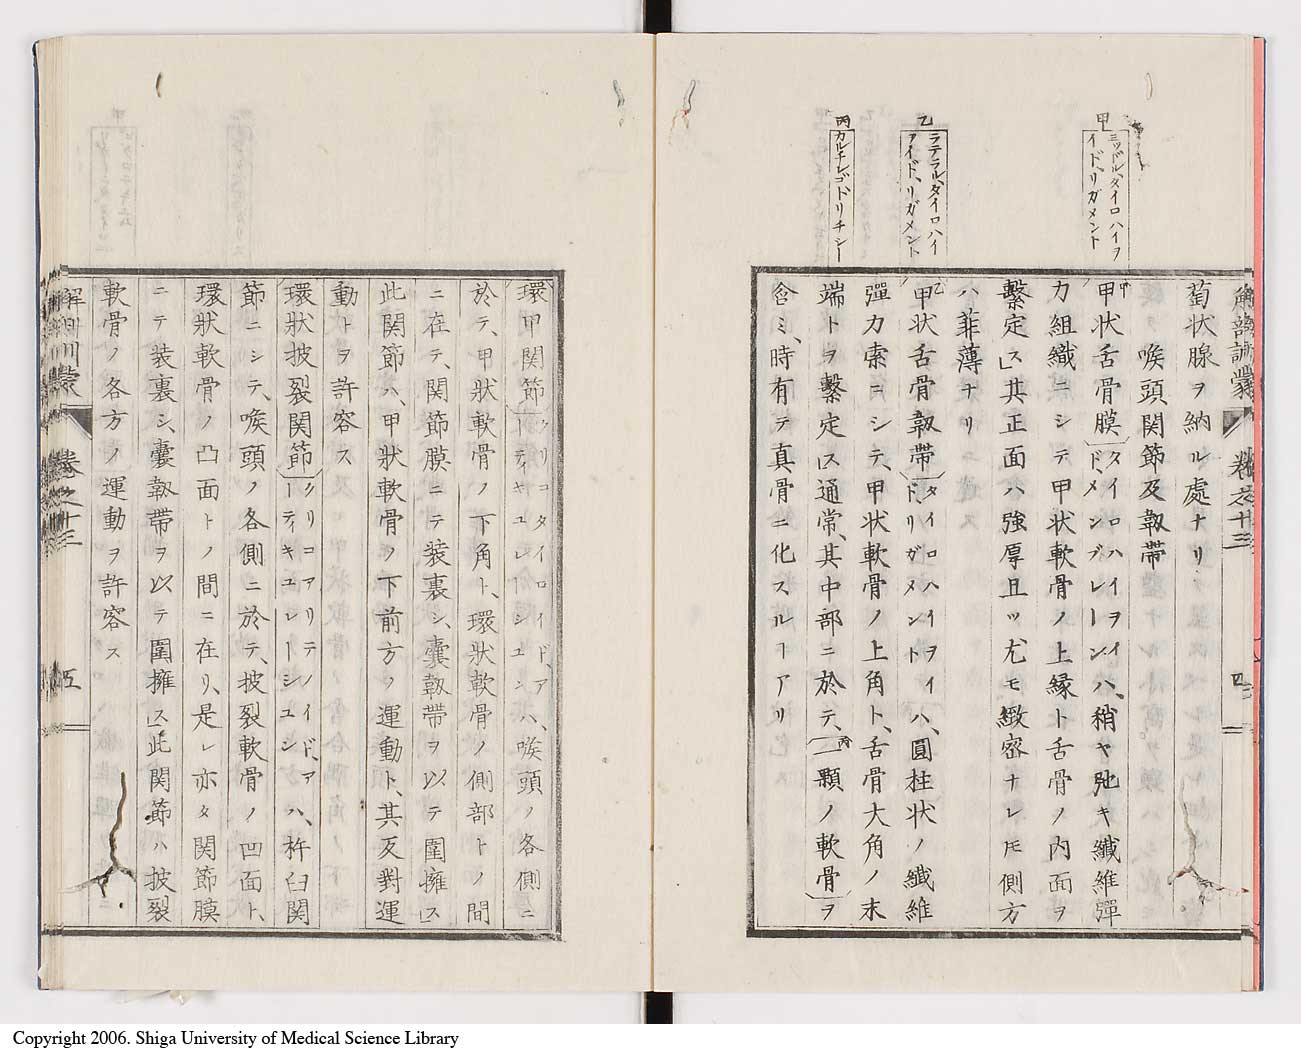 甲
ミッドル、タイロハイヲ
イド、リガメント
乙
ラテラル、タイロハイ
ヲイド、リガメント
丙
カルチレゴ、トリチシー
解剖訓蒙 巻之十三 四
萄状腺ヲ納ル處ナリ
喉頭関節及韌帶
甲状舌骨膜(タイロハイヲイド、メンブレーンハ、稍ヤ弛キ纎維彈
力組織ニシテ甲状軟骨ノ上縁ト舌骨ノ内面ヲ
繋定ス」其正面ハ強厚且ツ尤モ緻密ナレ𪜈側方
ハ菲薄ナリ
甲状舌骨韌帶(タイロハイヲイド、リガメントハ、圓柱状ノ纎維
彈力索ニシテ、甲状軟骨ノ上角ト、舌骨大角ノ末
端トヲ繋定ス」通常、其中部ニ於テ、一顆ノ軟骨ヲ
含ミ、時有テ真骨ニ化スルヿアリ
環甲関節(クリコタイロイド、アーティキュレーションハ、喉頭ノ各側ニ
於テ、甲状軟骨ノ下角ト、環状軟骨ノ側部トノ間
ニ在テ、関節膜ニテ装裏シ、嚢韌帶ヲ以テ圍擁ス」
此関節ハ、甲状軟骨ノ下前方ノ運動ト、其反對運
動トヲ許容ス
環状披裂関節(クリコアリテノイド、アーティキュレーションハ、杵臼関
節ニシテ、喉頭ノ各側ニ於テ、披裂軟骨ノ凹面ト、
環状軟骨ノ凸面トノ間ニ在リ、是レ亦タ関節膜
ニテ装裏シ、嚢韌帶ヲ以テ圍擁ス」此関節ハ披裂
軟骨ノ各方ノ運動ヲ許容ス
巻之十三 五
Copyright 2006. Shiga University of Medical Science Library